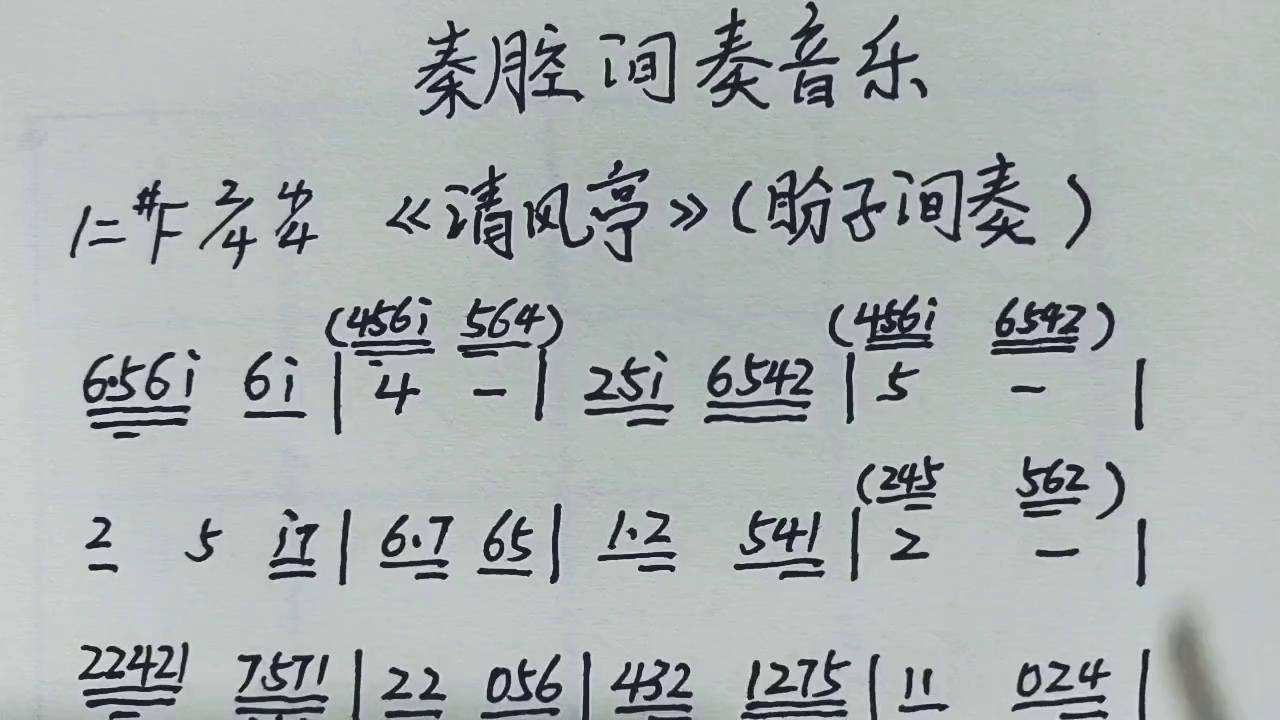 秦腔间奏音乐
1=#F 2/4 4/4 《清风亭》(盼子间奏)
(456i 564) (456i 6542)
6·56i 6i | 4 - | 25i 6542 | 5 - |
(245 562)
2 5 i7 | 6.7 65 | 1.2 541 | 2 - |
22421 7571 | 22 056 | 432 1275 | 11 024 |